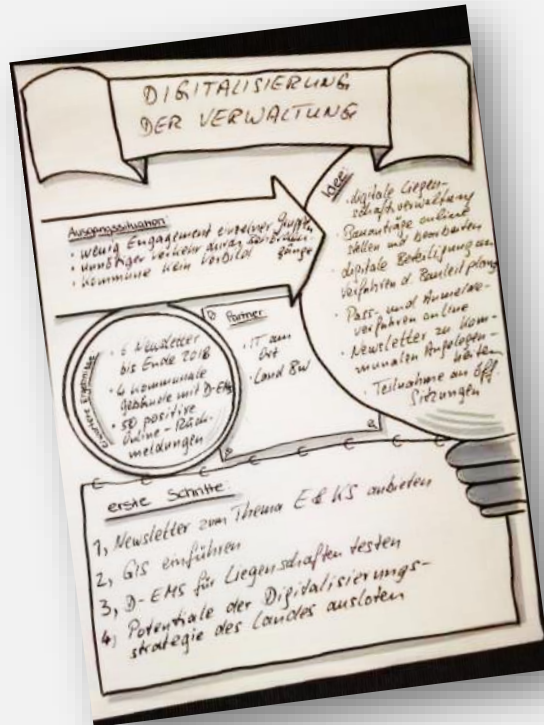 DIGITALISIERUNG
DER VERWALTUNG
Ausgangssituation:
· wenig Engagement einzelner Gruppen
· unnötiger Verkehr durch
gänge
· Kommune kein Vorbild
Idee:
· digitale Liegen-
schaftsverwaltung
· Bauanträge online
stellen und bearbeiten
· digitale Beteiligung am
Verfahren d. Bauleitplang
· Pass- und Ausweis-
verfahren online
· Newsletter zu kom-
munalen Angelegen-
heiten
· Teilnahme an öff.
Sitzungen
Ergebnisse
· 6 Newsletter
bis Ende 2018
· 4 kommunale
Gebäude mit D-EMS
· 50 positive
Online-Rück-
meldungen
Partner
· IT am
Ort
· Land BW
erste Schritte:
1, Newsletter zum Thema E & KS anbieten
2, GIS einführen
3, D-EMS für Liegenschaften testen
4, Potentiale der Digitalisierungs-
strategie des Landes ausloten